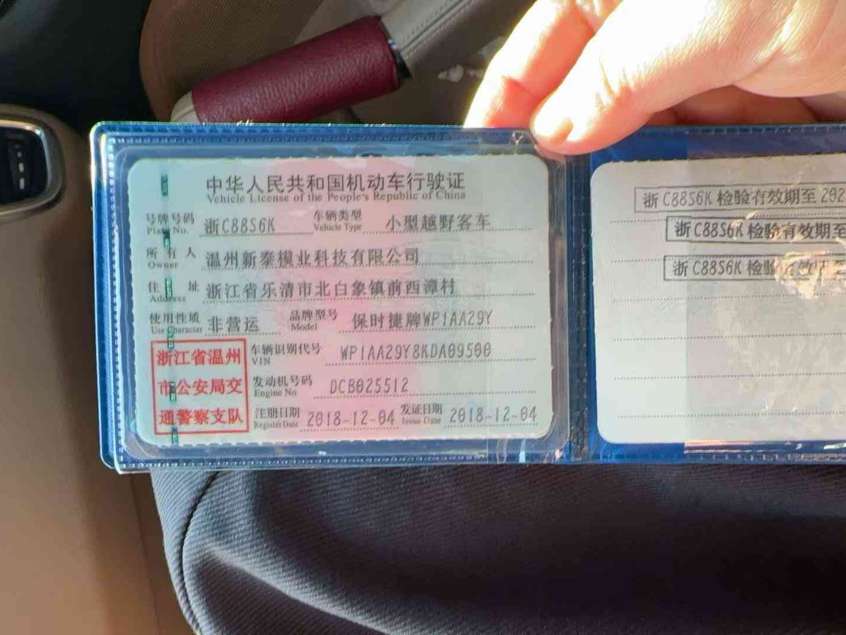 中华人民共和国机动车行驶证
Vehicle License of the People's Republic of China
号牌号码 浙C88S6K 车辆类型 小型越野客车
Plate No. Vehicle Type
所有人 温州新泰模业科技有限公司
Owner
住址 浙江省乐清市北白象镇前西漳村
Address
使用性质 非营运 品牌型号 保时捷牌WP1AA29Y
Use Character Model
浙江省温州
市公安局交
通警察支队
车辆识别代号 WP1AA29Y8KDA09500
VIN
发动机号码 DCB025512
Engine No
注册日期 2018-12-04 发证日期 2018-12-04
Register Date Issue Date
浙C88S6K 检验有效期至 202
浙C88S6K 检验有效期至
浙C88S6K 检验有效期至